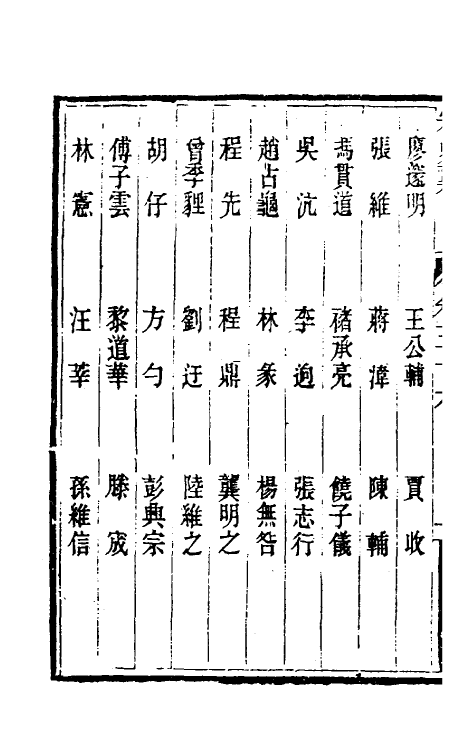 廖遂明　王公輔　賈收
張維　蔣湋　陳輔
馮貫道　禇承亮　饒子儀
吳沆　李逈　張志行
趙占龜　林彖　楊無咎
程先　程鼎　龔明之
曾季貍　劉迂　陸維之
胡仔　方勺　彭興宗
傅子雲　黎道華　滕宬
林憲　汪莘　孫維信